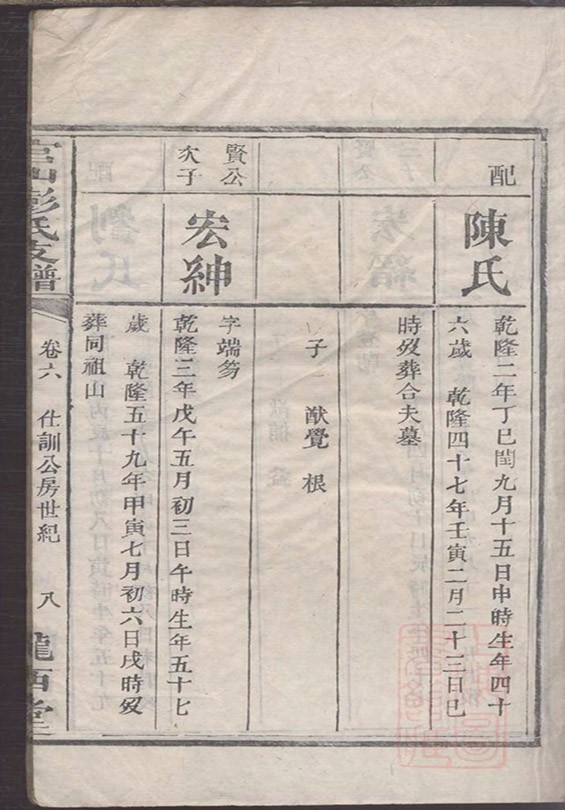 配
陳氏
乾隆二年丁巳閏九月十五日申時生年四十
六歲 乾隆四十七年壬寅二月二十三日巳
時歿葬合夫墓
子一 猷覺 根
賢公
次子
宏紳
字端笏
乾隆三年戊午五月初三日午時生年五十七
歲 乾隆五十九年甲寅七月初六日戌時歿
葬同祖山
官山彭氏支譜
卷六 仕訓公房世紀 八
隴西堂